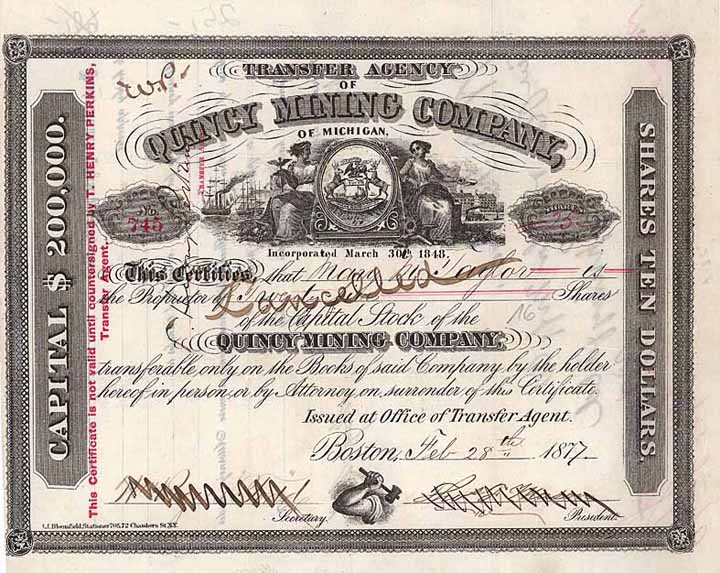 W.P.
TRANSFER AGENCY
OF
QUINCY MINING COMPANY,
OF MICHIGAN,
No 745
SHARES
Incorporated March 30th 1848.
This Certifies, that Taylor is
the Proprietor of Shares
Cancelled
of the Capital Stock of the
QUINCY MINING COMPANY,
transferable only on the Books of said Company by the holder
hereof in person, or by Attorney on surrender of this Certificate.
Issued at Office of Transfer Agent.
Boston, Feb 28th 1877
Secretary.
President.
CAPITAL $ 200,000.
SHARES TEN DOLLARS.
This Certificate is not valid until countersigned by T. HENRY PERKINS,
Transfer Agent.
16